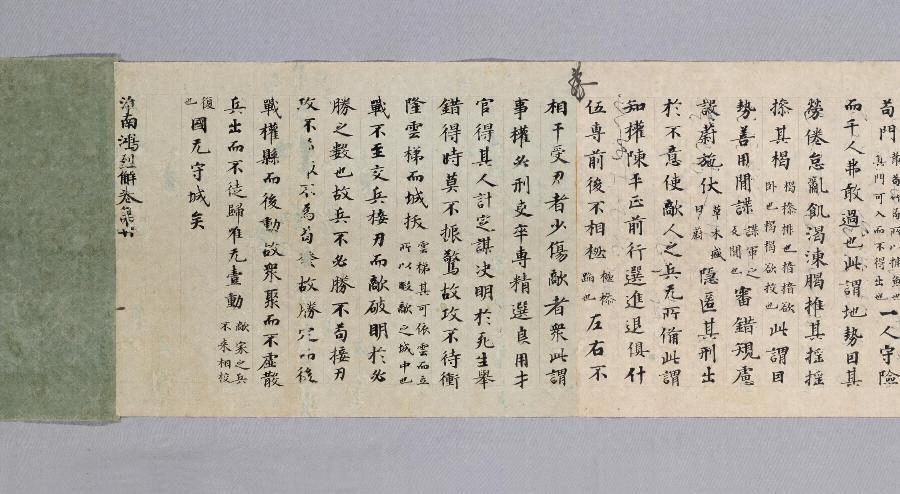 苟門 所以捕魚也 其門可入而不得出也 一人守險
而千人弗敢過也此謂地勢因其
勞倦怠亂飢渴凍暍推其搖搖
捺其揭 排也 欲臥也揭揭欲拔也 此謂因
勢善用閒諜 諜軍之反閒也 審錯規慮
設蔚施伏 草木盛曰蔚 隱匿其刑出
於不意使敵人之兵无所備此謂
知權陳卒正前行選進退俱什
伍專前後不相 蹈也 左右不
相干受刃者少傷敵者衆此謂
事權必刑吏卒專精選良用才
官得其人計定謀决明於死生舉
錯得時莫不振驚故攻不待衝
隆雲梯而城拔 雲梯其可依雲而立所以瞰敵之城中也
戰不至交兵接刃而敵破明於必
勝之數也故兵不必勝不苟接刃
攻不取不為苟發故勝定而後
戰權縣而後動故衆聚而不虛散
兵出而不徒歸唯无壹動 敵家之兵不来相校
復也 國无守城矣
淮南鴻烈解卷第廿